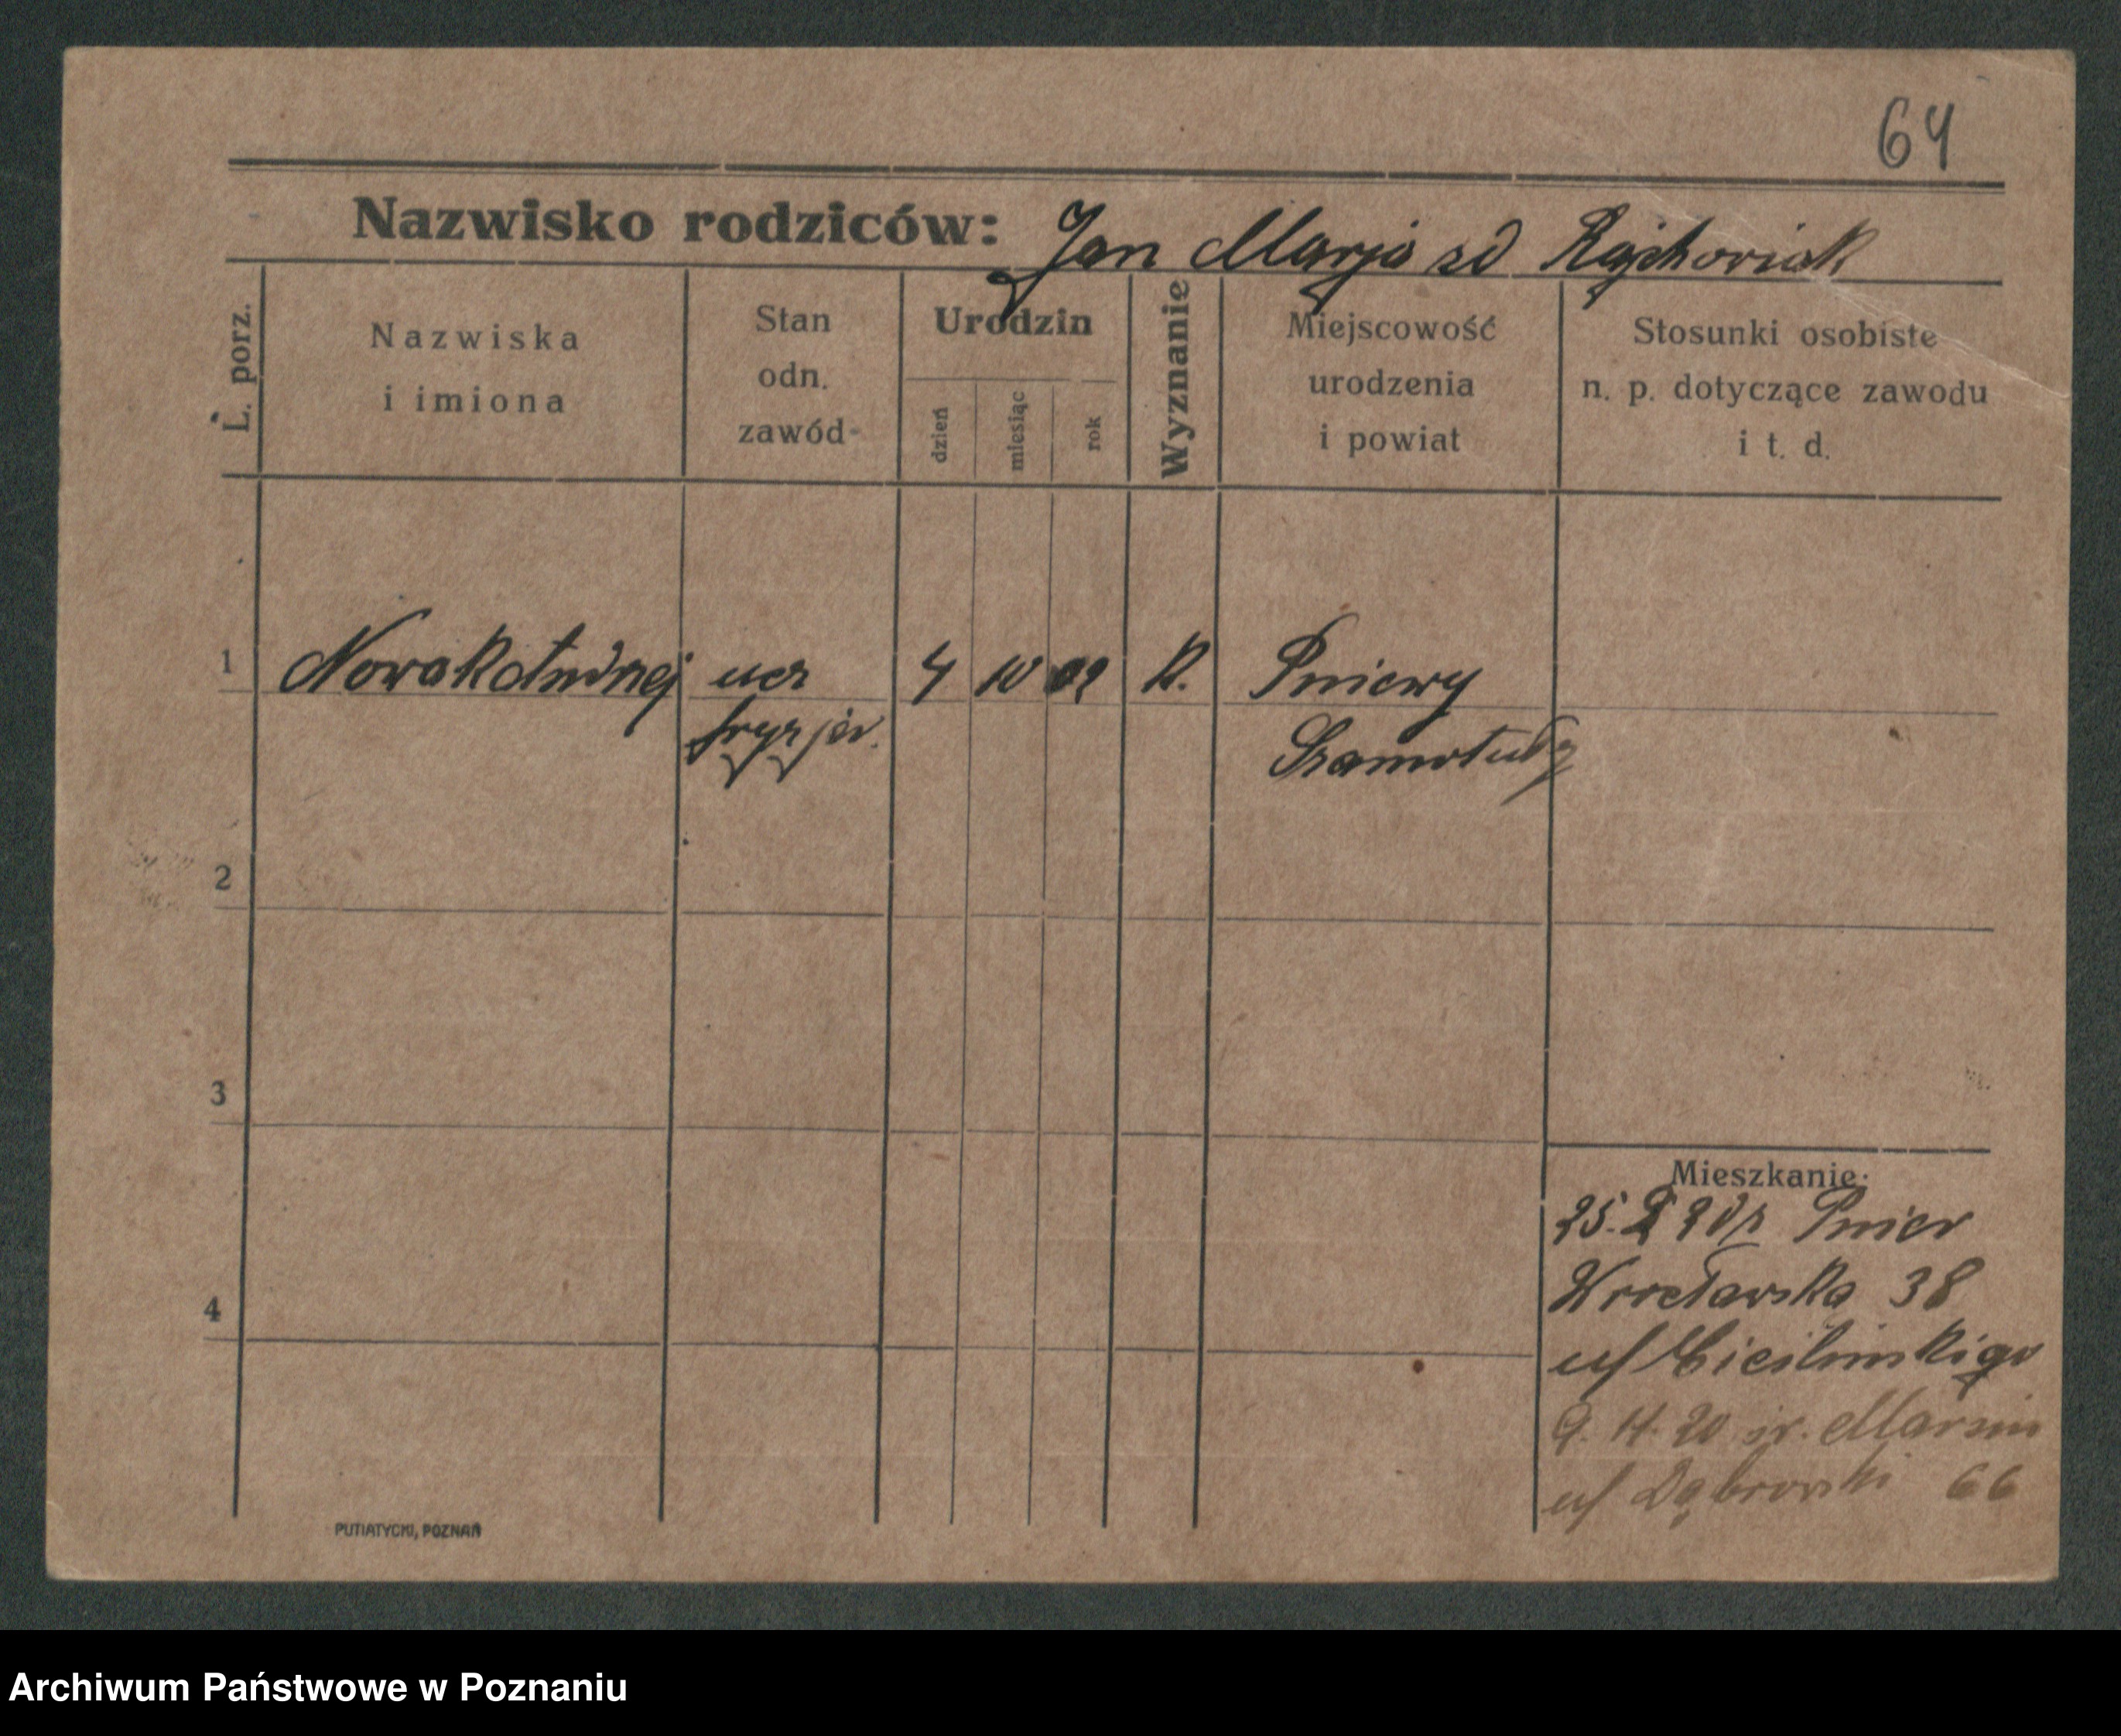 64
Nazwisko rodziców: Jan Marja zd
L. porz.
Nazwiska
i imiona
Stan
odn.
zawód
Urodzin
dzień
miesiąc
rok
Wyznanie
Miejscowość
urodzenia
i powiat
Stosunki osobiste
n. p. dotyczące zawodu
i t. d.
1 Nowak Andrzej ucz 4 10 02 K. Pniewy
fryzjer. Szamotuły
2
3
Mieszkanie:
25. Pniew
4 Wrocławska 38
u/
9. 4. 20 św. Marcin
u/ Dąbrowski 66
PUTIATYCKI, POZNAŃ
Archiwum Państwowe w Poznaniu